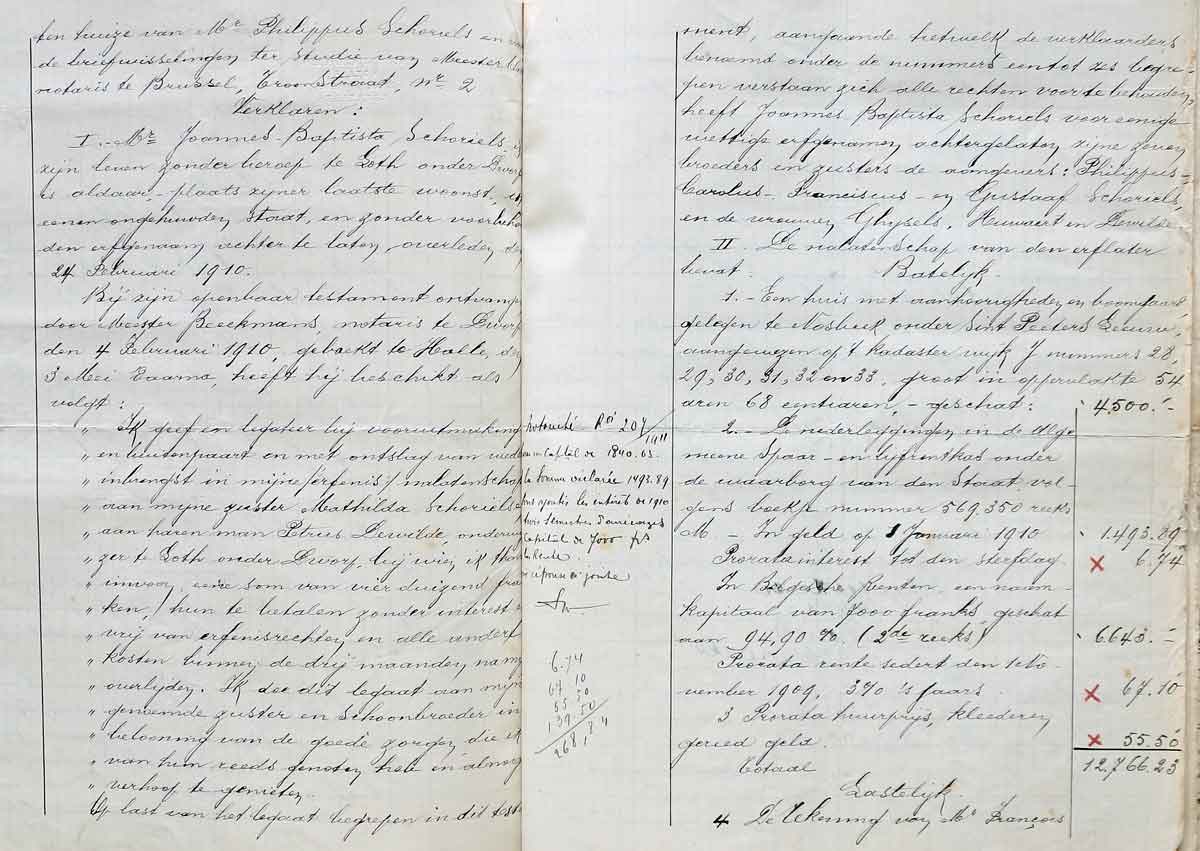 ten huize van Mr Philippus Schoriels en
de briefwisselingen ter studie van Meester
notaris te Brussel, Troonstraat, nr 2
Verklaren:
I.- Mr Joannes-Baptista Schoriels,
zijn leven zonder beroep te Loth onder Dworp
is aldaar, plaats zijner laatste woonst,
eenen ongehuwden staat, en zonder voorbehou
den erfgenaam achter te laten, overleden den
24 Februari 1910.
Bij zijn openbaar testament ontvangen
door Meester Beeckmans, notaris te Dworp
den 4 Februari 1910, geboekt te Halle, den
3 Mei daarna, heeft hij beschikt als
volgt:
" Ik geef en legateer bij vooruitmaking
" en buitenpaart en met ontslag van weder
" inbrengst in mijne (erfenis) nalatenschap
" aan mijne zuster Mathilda Schoriels
" aan haren man Petrus Dewilde, onderwij
" zer te Loth onder Dworp, bij wien ik thans
" inwoon, eene som van vier duizend fran
" ken, hun te betalen zonder interest
" vrij van erfenisrechten en alle andere
" kosten binnen de drij maanden na mijn
" overlijden. Ik doe dit legaat aan mijn
" genoemde zuster en Schoonbroeder in
" belooning van de goede zorgen die ik
" van hun reeds genoten heb en alnog
" verhoop te genieten.
Op last van het legaat begrepen in dit testa
Rle 207/1911
capital de 1840.65
la somme déclarée 1493.89
plus ajoutés les intérêts de 1910
trois semestres d'arrérages
capital de 7000 frs
la Rente.
réponse ci jointe
6.74
67 10
55 50
139.50
268,84
ment, aangaande hetwelk de verklaarders
benoemd onder de nummers een tot zes begre-
pen verstaan zich alle rechten voor te behouden,
heeft Joannes Baptista Schoriels voor eenige
wettige erfgenamen achtergelaten zijne zeven
broeders en zusters de aangevers: Philippus-
Carolus- Franciscus- en Gustaaf Schoriels,
en de vrouwen Ghysels, Huwaert en Dewilde.
II. De nalatenschap van den erflater
bevat. Batelijk.
1. - Een huis met aanhoorigheden en boomgaard
gelegen te Nosbeek onder Sint Peeters Leeuw,
aangewezen op 't kadaster wijk J nummers 28,
29, 30, 31, 32 en 33, groot in oppervlakte 54
aren 68 centiaren, - geschat: 4.500.-
2. - De nederleggingen in de Alge
meene Spaar- en lijfrentkas onder
de waarborg van den Staat, vol-
gens boekje nummer 569.350 reeks
M. - In geld op 1 Januari 1910 1.493.89
Prorata interest tot den sterfdag x 6.74
In Belgische Renten, een naam-
kapitaal van 7000 franks, geschat
aan 94,90 %. (2de reeks) 6643.-
Prorata rente sedert den 1 No-
vember 1909, 3% 's jaars. x 67.10
3 Prorata huurprijs, kleederen,
gereed geld. x 55.50
Totaal 12,766.23
Lastelijk.
4 De Rekening van Mr François